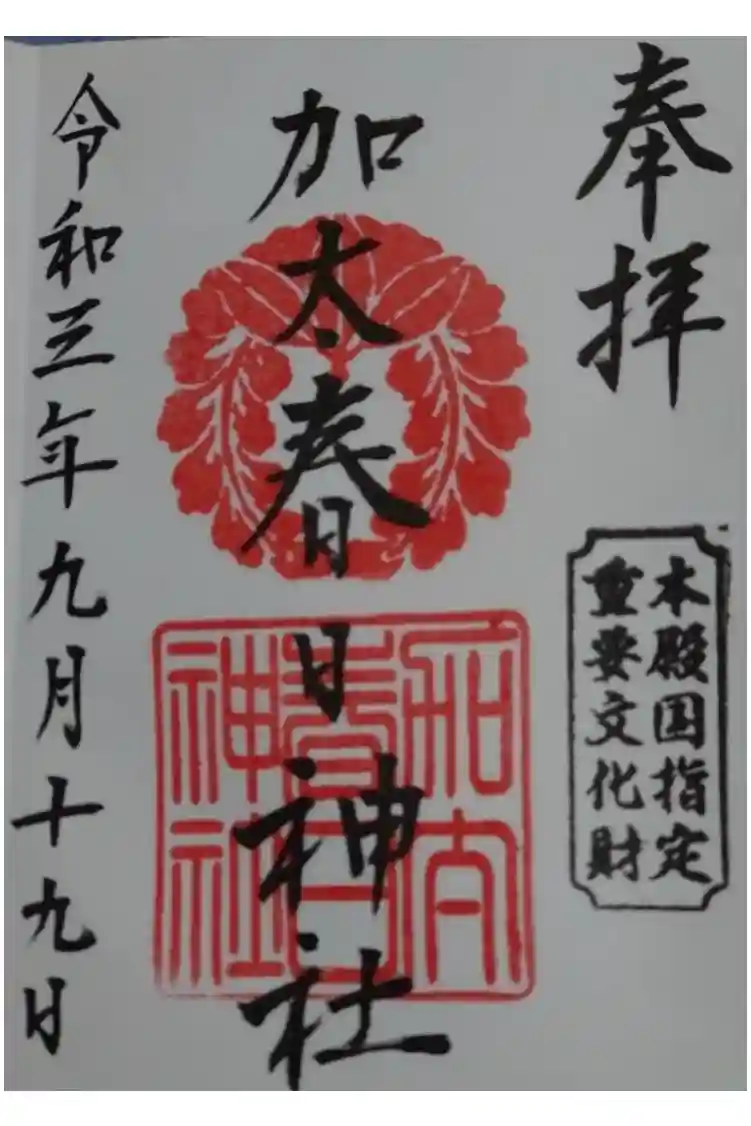 奉拝
本殿国指定
重要文化財
加太春日神社
加太
春日
神社
令和三年九月十九日